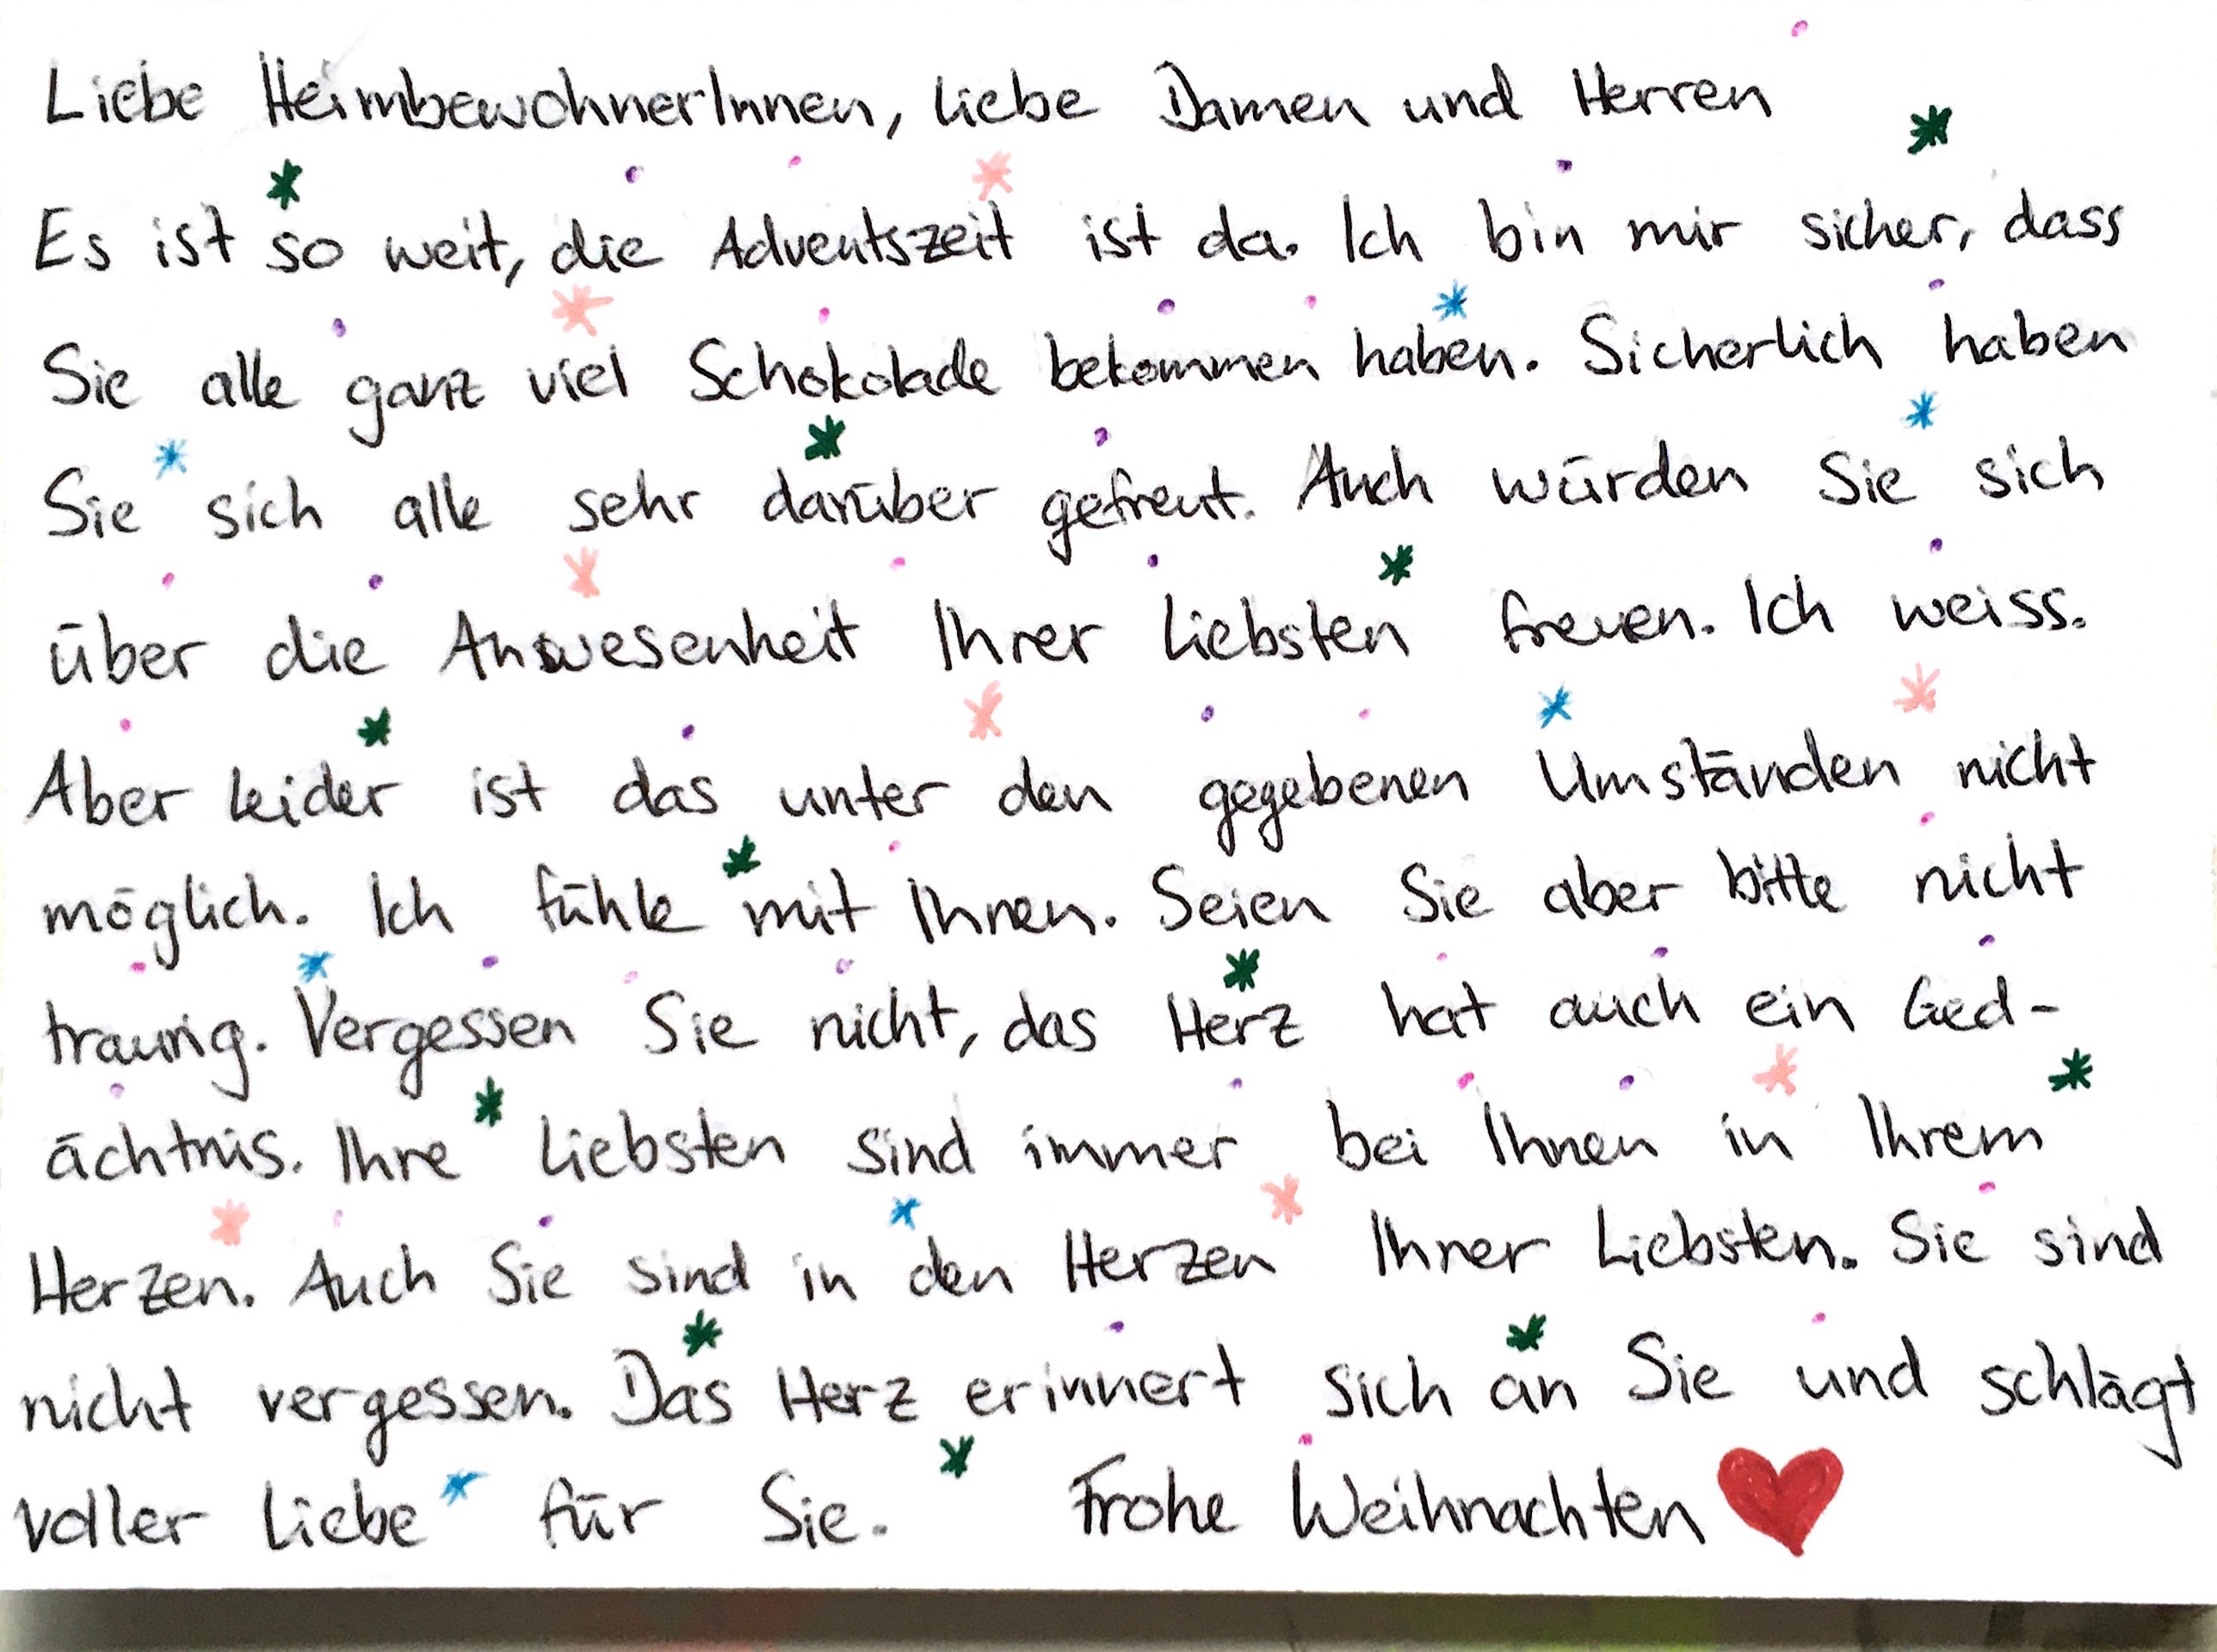 Liebe HeimbewohnerInnen, liebe Damen und Herren
Es ist so weit, die Adventszeit ist da. Ich bin mir sicher, dass
Sie alle ganz viel Schokolade bekommen haben. Sicherlich haben
Sie sich alle sehr darüber gefreut. Auch würden Sie sich
über die Anwesenheit Ihrer Liebsten freuen. Ich weiss.
Aber leider ist das unter den gegebenen Umständen nicht
möglich. Ich fühle mit Ihnen. Seien Sie aber bitte nicht
traurig. Vergessen Sie nicht, das Herz hat auch ein Ged-
ächtnis. Ihre Liebsten sind immer bei Ihnen in Ihrem
Herzen. Auch Sie sind in den Herzen Ihrer Liebsten. Sie sind
nicht vergessen. Das Herz erinnert sich an Sie und schlägt
voller Liebe für Sie. Frohe Weihnachten